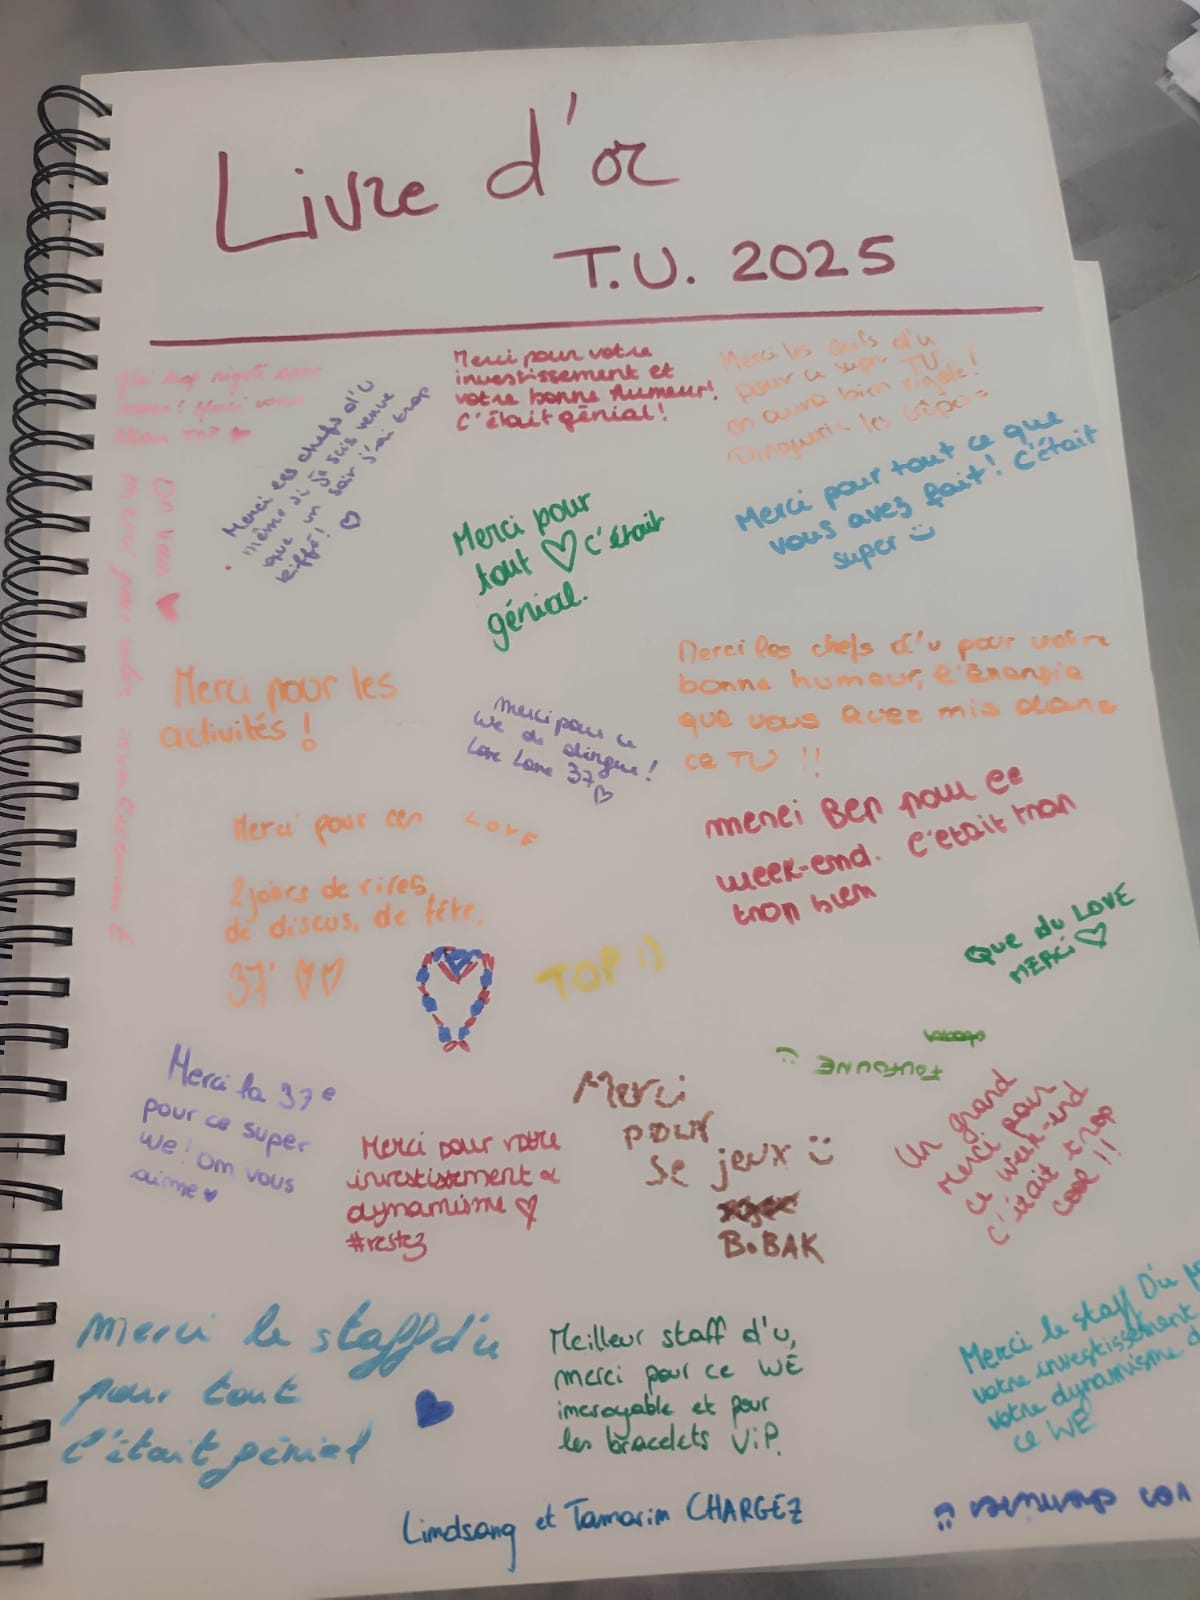 Livre d'or
T.U. 2025
Merci pour votre
investissement et
votre bonne humeur!
C'était génial!
Merci les chefs d'U
pour ce super TU
on aura bien rigolé!
Merci les chefs d'U
même si je suis venue
que un soir j'ai trop
kiffé! ♡
TOP ♥
On vous ♥
Merci pour votre
Merci pour
tout ♡ c'était
génial.
Merci pour tout ce que
vous avez fait! C'était
super
Merci pour les
activités !
Merci pour ce
WE de dingue!
Love Love 37 ♡
Merci les chefs d'U pour votre
bonne humeur, l'énergie
que vous avez mis dans
ce TU !!
Merci pour ces
LOVE
2 jours de rires,
de discus, de fête.
37 ♡♡
merci BEP pour ce
week-end. C'était trop
trop bien
TOP :)
Que du LOVE
MERCI ♡
FOUFOUNE :)
Merci la 37e
pour ce super
WE! On vous
aime ♥
Merci pour votre
investissement &
dynamisme ♡
#restez
Merci
pour
se jeux
BoBAK
Un grand
merci pour
ce week-end
c'était trop
cool !!
Merci le staff d'u
pour tout
c'était génial
♥
Meilleur staff d'u,
merci pour ce WE
incroyable et pour
les bracelets ViP.
Merci le staff D'U
votre investissement
votre dynamisme
ce WE
Limdsang et Tamarim CHARGEZ